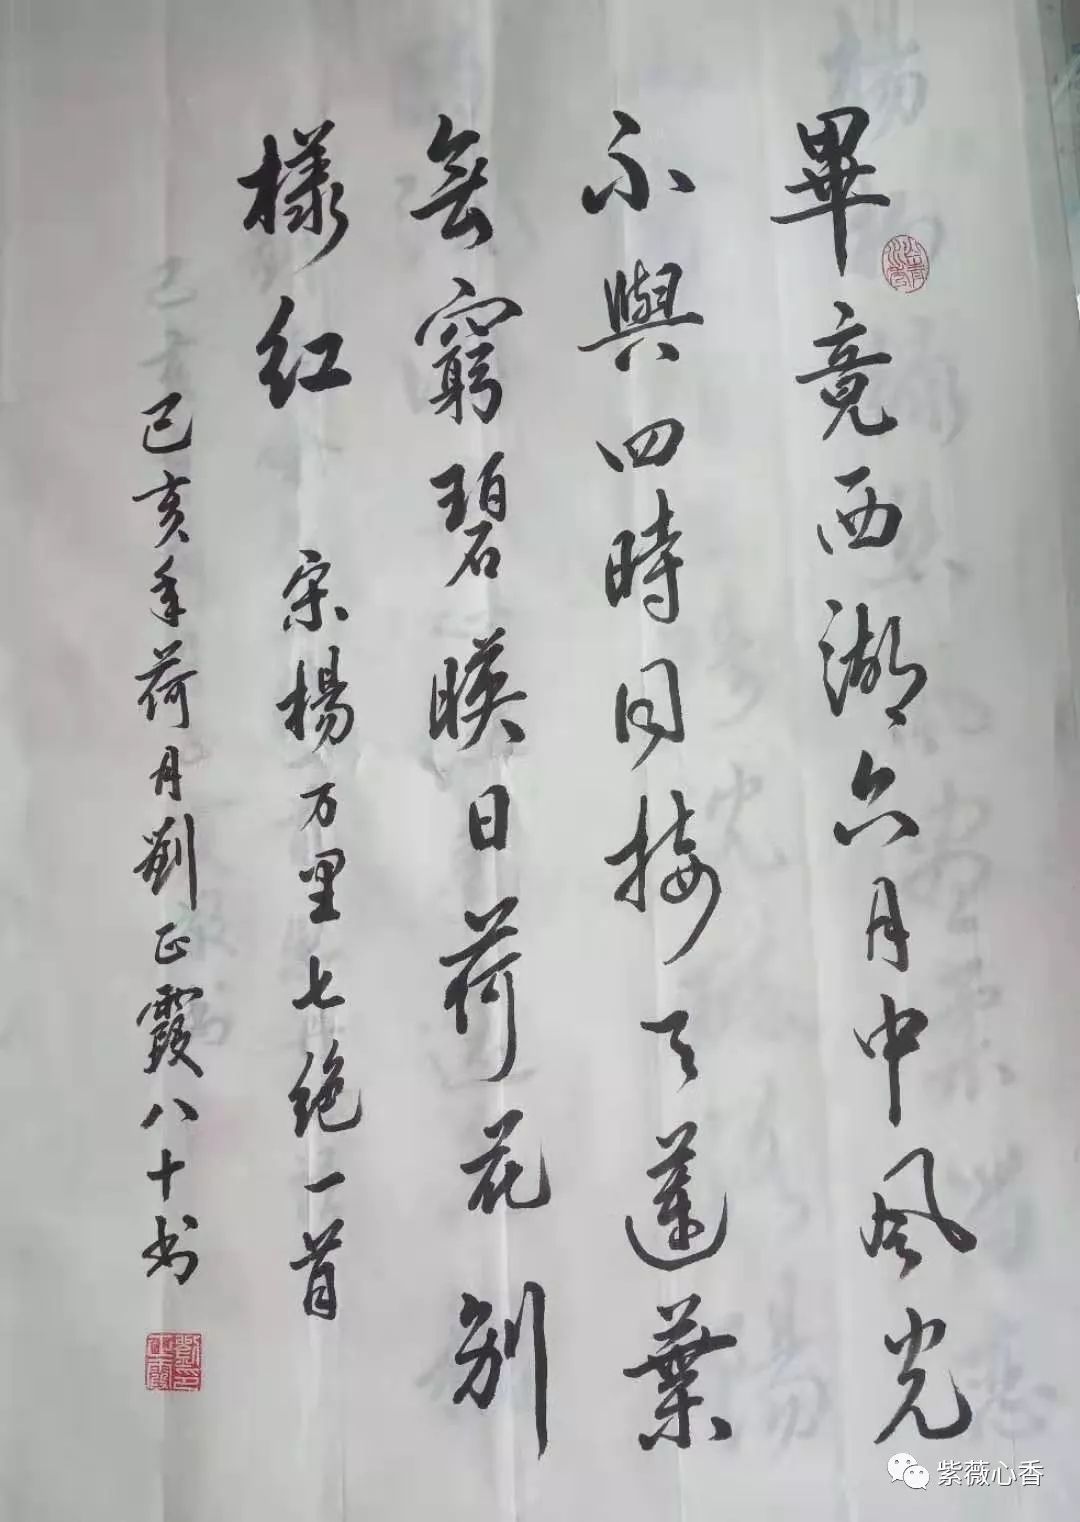 畢竟西湖六月中風光
不與四時同接天蓮葉
無窮碧暎日荷花别
樣红 宋楊万里七绝一首
己亥年荷月劉正霞八十书
紫薇心香